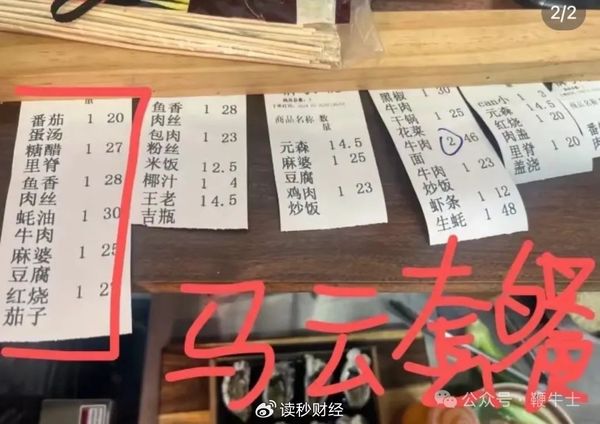 2/2
量
番茄 1 20
蛋汤
糖醋 1 27
里脊
鱼香 1 28
肉丝
蚝油 1 30
牛肉
麻婆 1 25
豆腐
红烧 1 2
茄子
鱼香 1 28
肉丝
包肉 1 23
粉丝
米饭 1 2.5
椰汁 1 4
王老 1 4.5
吉瓶
商品名称 数
量
元森 1 4.5
麻婆 1 25
豆腐
鸡肉 1 23
炒饭
黑椒 1 30
牛肉
干锅 1 25
花菜
牛肉 2 46
面
牛肉 1 23
炒饭
虾条 1 12
生蚝 1 48
can小 1 3
元森 1 4.5
红烧 1
肉盖
里脊 1
盖浇
马云套餐
读秒财经
公众号·鞭牛士